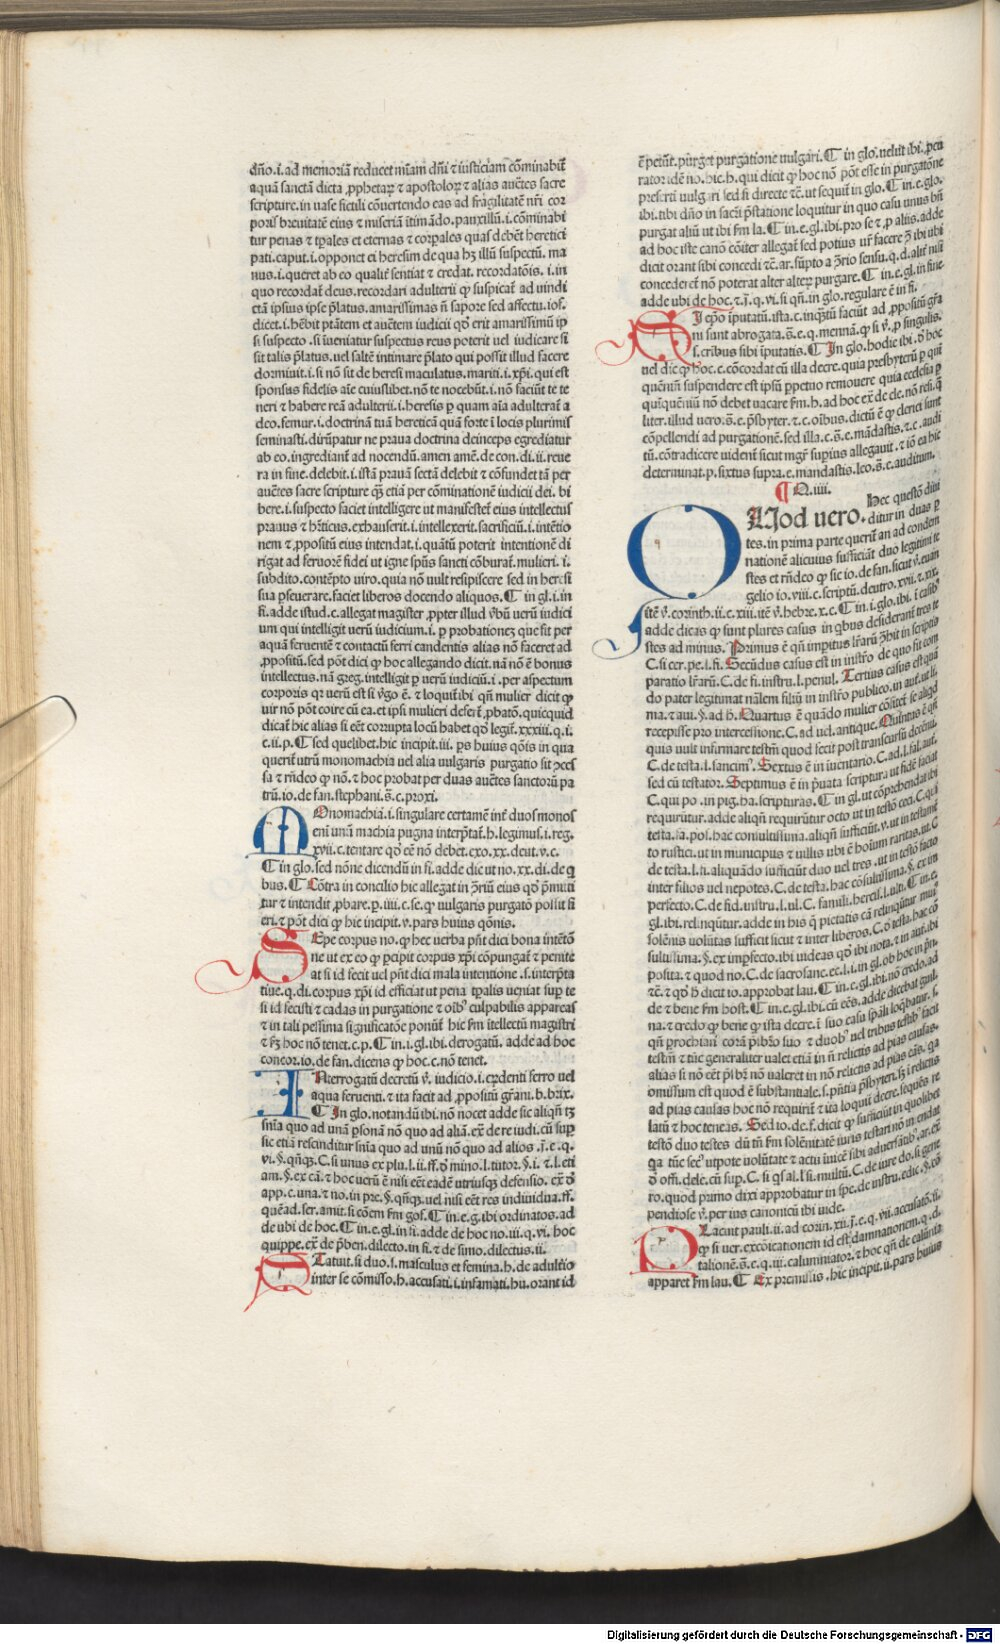 dño.i.ad memoriã reducet miãm dñi ⁊ iusticiam cõminabit̃
aquã sanctã dicta ꝓphetaꝝ ⁊ apostoloꝝ ⁊ alias auctẽs sacre
scripture.in uase fictili cõuertendo eas ad fragilitatẽ nr̃i cor
poris breuitatẽ eius ⁊ miseriã ĩtimãdo.pauxillũ.i.cõminabi
tur penas ⁊ tpales et eternas ⁊ corpales quas debẽt heretici
pati.caput.i.opponet ei heresim de qua hʒ illũ suspectũ.ma
nus.i.queret ab eo qualiť sentiat ⁊ credat.recordatõis.i.in
quo recordat̃ deus.recordari adulterii ꝙ suspicat̃ ad uindi
ctã ipsius ipse p̃latus.amarissimas ñ sapore sed affectu.ios.
dicet.i.hẽbit ptãtem et auctẽm iudicii qd̃ erit amarissimũ ip
si suspecto.si iueniatur suspectus reus poterit uel iudicare si
sit talis p̃latus.uel saltẽ intimare p̃lato qui possit illud facere
dormiuit.i.si nõ sit de heresi maculatus.mariti.i.xp̃i.qui est
sponsus fidelis aĩe cuiuslibet.nõ te nocebũt.i.nõ faciũt te te
neri ⁊ habere reã adulterii.i.heresis p quam aĩa adulterat̃ a
deo.femur.i.doctrinã tuã hereticã quã forte ĩ locis plurimis
seminasti.dirũpatur ne praua doctrina deinceps egrediatur
ab eo.ingrediant̃ ad nocendũ.amen amẽ.de con.di.ii.reue
ra in fine.delebit.i.istã prauã sectã delebit ⁊ cõfundet tã per
auctẽs sacre scripture qʒ etiã per cõminationẽ iudicii dei.bi
bere.i.suspecto faciet intelligere ut manifestet̃ eius intellectus
prauus ⁊ hr̃ticus.exhauserit.i.intellexerit.sacrificiũ.i.intẽtio
nem ⁊ ꝓpositũ eius intendat.i.quãtũ poterit intentionẽ di
rigat ad feruorẽ fidei ut igne spũs sancti cõburat̃.mulieri.i.
subdito.contẽpto uiro.quia nõ uult resipiscere sed in heresi
sua pseuerare.faciet liberos docendo aliquos.¶ in gl.i.in
fi.adde istud.c.allegat magister ꝓpter illud ỹbũ uerũ iudici
um qui intelligit uerũ iudicium.i.p probationeʒ que fit per
aquã feruentẽ ⁊ contactũ ferri candentis alias nõ faceret ad
ꝓpositũ.sed põt dici ꝙ hoc allegando dicit.nã nõ ẽ bonus
intellectus.nã greg.intelligit p uerũ iudiciũ.i.per aspectum
corporis qꝛ uerũ est si ỹgo ẽ.⁊ loquit̃ ibi qñ mulier dicit ꝙ
uir nõ põt coire cũ ea.et ipsi mulieri defert̃ ꝓbatõ.quicquid
dicat̃ hic alias si eẽt corrupta locũ habet qd̃ legit̃.xxxiii.q.i.
e.ii.p.¶ sed quelibet.hic incipit.iii.ps huius qõis in qua
querit̃ utrũ monomachia uel alia uulgaris purgatio sit ꝯces
sa ⁊ rñdet ꝙ nõ.⁊ hoc probat per duas auctẽs sanctorũ pa
trũ.io.de fan.stephani.s̃.c.proxi.
MOnomachiã.i.singulare certamẽ int̃ duos monos
eni unũ machia pugna interp̃tat̃.h.legimus.i.reg.
xvii.c.tentare qd̃ eẽ nõ debet.exo.xx.deut.v.c.
¶ in glo.sed nõne dicendũ in fi.adde dic̃ ut no.xx.di.de q
bus.¶ Cõtra in concilio hic allegat in ꝯ̃riũ eius qd̃ p̃miti
tur ⁊ intendit ꝓbare.p.iiii.c.se.ꝙ uulgaris purgatõ possit fi
eri.⁊ põt dici ꝙ hic incipit.v.pars huius qõnis.
SEpe corpus no.ꝙ hec uerba pñt dici bona intẽtõ
ne ut ex eo ꝙ pcipit corpus xp̃i cõpungat̃ ⁊ penite
at si id fecit uel pñt dici mala intentione.s.interp̃ta
tiue.q.di.corpus xp̃i id efficiat ut pena tp̃alis ueniat sup te
si id fecisti ⁊ cadas in purgatione ⁊ oĩbꝰ culpabilis appareas
⁊ in tali pessima significatõe ponũt̃ hic fm̃ itellectũ magistri
⁊ fʒ hoc nõ tenet.c.p.¶ in.i.gl.ibi.derogatũ.adde ad hoc
concor.io.de fan.dicens ꝙ hoc.c.nõ tenet.
INterrogatũ decretũ ỹ.iudicio.i.cãdenti ferro uel
aqua feruenti.⁊ ita facit ad ꝓpositũ gr̃ani.h.brix.
¶ In glo.notandũ ibi.nõ nocet adde sic aliqñ tʒ
snĩa quo ad unã psonã nõ quo ad aliã.ex̃ de re iudi.cũ supꝑ
sic etiã rescinditur snĩa quo ad unũ nõ quo ad alios.j̃.e.q.
vi.§.qñqʒ.C.si unus ex plu.l.ii.ff.d̃ mino.l.tutor.§.i.⁊.l.eti
am.§.ex cã.⁊ hoc uerũ ẽ nisi eẽt eadẽ utriusqʒ defensio.ex̃ d̃
app.c.una.⁊ no.in pre.§.qñqʒ.uel nisi eẽt res indiuidua.ff.
quẽad.ser.amit.si cõem fm̃ gof.¶ in.e.g.ibi ordinatos.ad
de ubi de hoc.¶ in.e.gl.in fi.adde de hoc no.iii.q.vi.hoc
quippe.ex̃ de p̃ben.dilecto.in fi.⁊ de simo.dilectus.ii.
STatuit.si duo.s.masculus et femina.h.de adult̃io
inter se cõmisso.h.accusati.i.infamati.hu.orant id
ẽ petũt.purget̃ purgatione uulgari.¶ in glo.uelut ibi.pcu
rator idẽ no.hic.h.qui dicit ꝙ hoc nõ põt esse in purgatõne
presertĩ uulgari sed si directe ⁊c̃.ut sequit̃ in glo.¶ in.e.glo.
ibi.tibi dño in sacri p̃statione loquitur in quo casu unus bñ
purgat aliũ ut ibi fm̃ la.¶ in.e.gl.ibi.pro se ⁊.p aliis.adde
ad hoc iste canõ cõiter allegat̃ sed potius ur̃ facere ꝯ̃ ibi ubi
dicit orant sibi concedi ⁊c̃.ar.sũpto a ꝯ̃rio sensu.q.d.alit̃ nisi
concederet̃ nõ poterat alter alterꝫ purgare.¶ in.e.gl.in fine
adde ubi de hoc.⁊.j̃.q.vi.si qñ.in glo.regulare ẽ in fi.
SI ep̃o ĩputatũ.ista.c.inq̃stũ faciũt ad ꝓpositũ gr̃a
ni sunt abrogata.s̃.e.q.mennã.ꝙ si ỹ.p singulis.
s.cribus sibi ĩputatis.¶ In glo.hodie ibi.d̃ hoc
uel dic ꝙ hoc.c.cõcordat cũ illa decre.quia presbyterũ p quĩ
quẽniũ suspendere est ipsũ ppetuo remouere quia ecclesia p
quĩquẽniũ nõ debet uacare fm̃.h.ad hoc ex̃ de ele.nõ resi.q̃
liter.illud uero.s̃.e.p̃sbyter.⁊.c.oĩbus.dictũ ẽ ꝙ clerici sunt
cõpellendi ad purgationẽ.sed illa.c.s̃.e.mãdastis.⁊.c.audi
tũ.cõtradicere uident̃ sicut mgr̃ supius allegauit.⁊ iõ ea hic
determinat.p.sixtus supra.e.mandastis.leo.s̃.e.auditum.
¶ Q.iiii.
QUod uero. Hec questõ diui
ditur in duas p
tes.in prima parte querit̃ an ad condem
nationẽ alicuius sufficiãt duo legitimi te
stes et rñdeo ꝙ sic io.de fan.sicut ỹ.euãn
gelio io.viii.c.scriptũ.deutro.xvii.⁊.xix.
itẽ ỹ.corinth.ii.c.xiii.itẽ ỹ.hebre.x.c.¶ in.i.glo.ibi.ĩ casibꝰ
adde dicas ꝙ sunt plures casus in qbus desiderant̃ tres te
stes ad minus.Primus ẽ qñ impitus lr̃arũ ꝯ̃hit in scriptis
C.si cer.pe.l.fi.Secũdus casus est in instro̅ de quo fit com
paratio lr̃arũ.C.de fi.instru.l.penul.Tertius casus est quã
do pater legitimat nãlem filiũ in instro̅ publico.in aut̃.ut li.
ma.⁊ aui.§.ad h̃.Quartus ẽ quãdo mulier cõfitet̃ se aliqd
recepisse pro intercessione.C.ad uel.antique.Quintus ẽ qñ
quis uult infirmare testm̃ quod fecit post transcursũ deceñii.
C.de testa.l.sancimꝰ.Sextus ẽ in iuentario.C.ad.l.fal.aut̃.
sed cũ testator.Septimus ẽ in p̃uata scriptura ut fidẽ faciat
C.qui po.in pig.ha.scripturas.¶ in gl.ut cõprehendat ibi
requirũtur.adde aliqñ requirũtur octo ut in testõ ceci.C.qui
testa.fa.pos.hac consultissima.aliqñ sufficiũt.v.ut in testamẽ
to rustici.ut in municipus ⁊ uillis ubi ẽ hoĩum raritas.ut.C
de testa.l.ii.aliquãdo sufficiũt duo uel tres.ut in testõ facto
inter filios uel nepotes.C.de testa.hac cõsultissima.§.ex im
perfecto.C.de fid.instru.l.ul.C.famili.hercis.l.ulti.¶ in.e.
gl.ibi.relinq̃tur.adde in his q̃ pietatis cã relinqũtur minꝰ
solẽnis uolũtas sufficit sicut ⁊ inter liberos.C.d̃ testa.hac cõ
sultissima.§.ex imp̃fecto.ibi uideas qd̃ ibi nota.⁊ in aut̃.ibi
posita.⁊ quod no.C.de sacrosanc.ec.l.i.in gl.ob hoc in prin.
⁊c̃.⁊ qd̃ h̃ dicit io.approbat lau.¶ in.e.gl.ibi.nõ credo.ad
de ⁊ bene fm̃ host.¶ in.e.gl.ibi.cũ eẽs.adde dicebat guil.
na.⁊ credo ꝙ bene ꝙ ista decre.ĩ suo casu sp̃ali loqbatur.s.
qñ prochianꝰ corã p̃sbr̃o suo ⁊ duobꝰ uel tribus testibꝰ facit
testm̃ ⁊ tũc generaliter ualet etiã in ñ relictis ad pias causas.
alias si nõ eẽt p̃sbr̃ nõ ualeret in nõ relictis ad pias cãs.qa
omissum est quod ẽ substantiale.s.pñtia p̃sbyteri.fʒ i relictis
ad pias causas hoc nõ requirit̃ ⁊ ita loquit̃ decre.sequẽs re
latũ ⁊ hoc teneas.Sed io.de.f.dicit ꝙ sufficiũt in quolibet
testõ duo testes dũ tñ fm̃ solẽnitatẽ iuris testari nõ intendat
qa tũc fecꝰ utpote uolũtate ⁊ actu iuicẽ sibi aduersãtibꝰ.ar.ex̃
d̃ offi.dele.cũ sup.C.si qs al.l.si.multũ.C.de iure do.si gene
ro.quod primo dixi approbatur in spe.de instru.edic.§.cõ
pendiose ỹ.per ius canonicũ ibi uide.
PLacuit pauli.ii.ad corin.xii.j̃.e.q.vii.accusatõ.ii.
ꝙ si uer.excõicationem id est damnationem.q.d.
talionẽ.s̃.e.q.iii.calumniator.⁊ hoc qñ de calũnia
apparet fm̃ lau.¶ Ex premissis.hic incipit.ii.pars huius
Digitalisierung gefördert durch die Deutsche Forschungsgemeinschaft - DFG